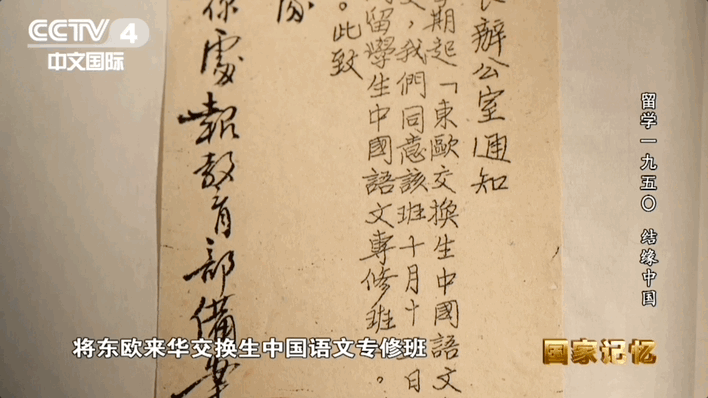 CCTV 4
中文国际
辦公室通知
期起「東歐交換生中國語文
，我們同意該班十月十日
留學生中國語文專修班。
。此致
處報教育部備案
留学一九五〇 结缘中国
将东欧来华交换生中国语文专修班
国家记忆